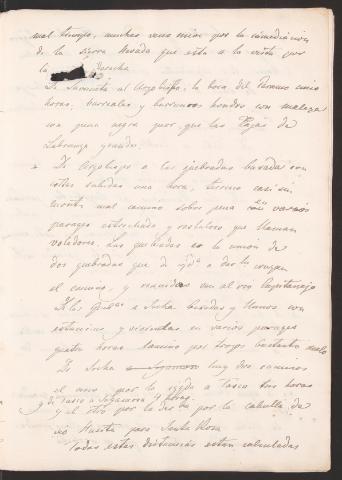 mal tiempo, muchas veces nieva por la inmediacion
de la Sierra Nevada que esta a la vista por
la derecha
De Sativa al Arzobispo, la boca del Paramo cinco
horas; barriales y barrancos hondos con maleza
con pena negra peor que las lajas de
Labranza grande.
De Arzobispo a las quebradas bajada con
cortas subidas una hora, terreno casi en
cuesta mal camino sobre pena con en varios
parages estrechado y resbaloso que llaman
voladores. Las quebradas es la union de
dos quebradas que de izqda a dcha cruzan
el camino, y reunidas van al rio Capitanejo
De las Quebdas a Jericha bajadas y llanos con
estancias y viviendas en varios parages
quatro horas camino por trozos bastante malo
De Socha hay dos caminos
el uno por la izqda a Tasco tres horas
y de Tasco a Sogamoso 7 horas
y el otro por la derecha por la orilla de
rio para Santa Rosa
Todas estas distancias estan calculadas